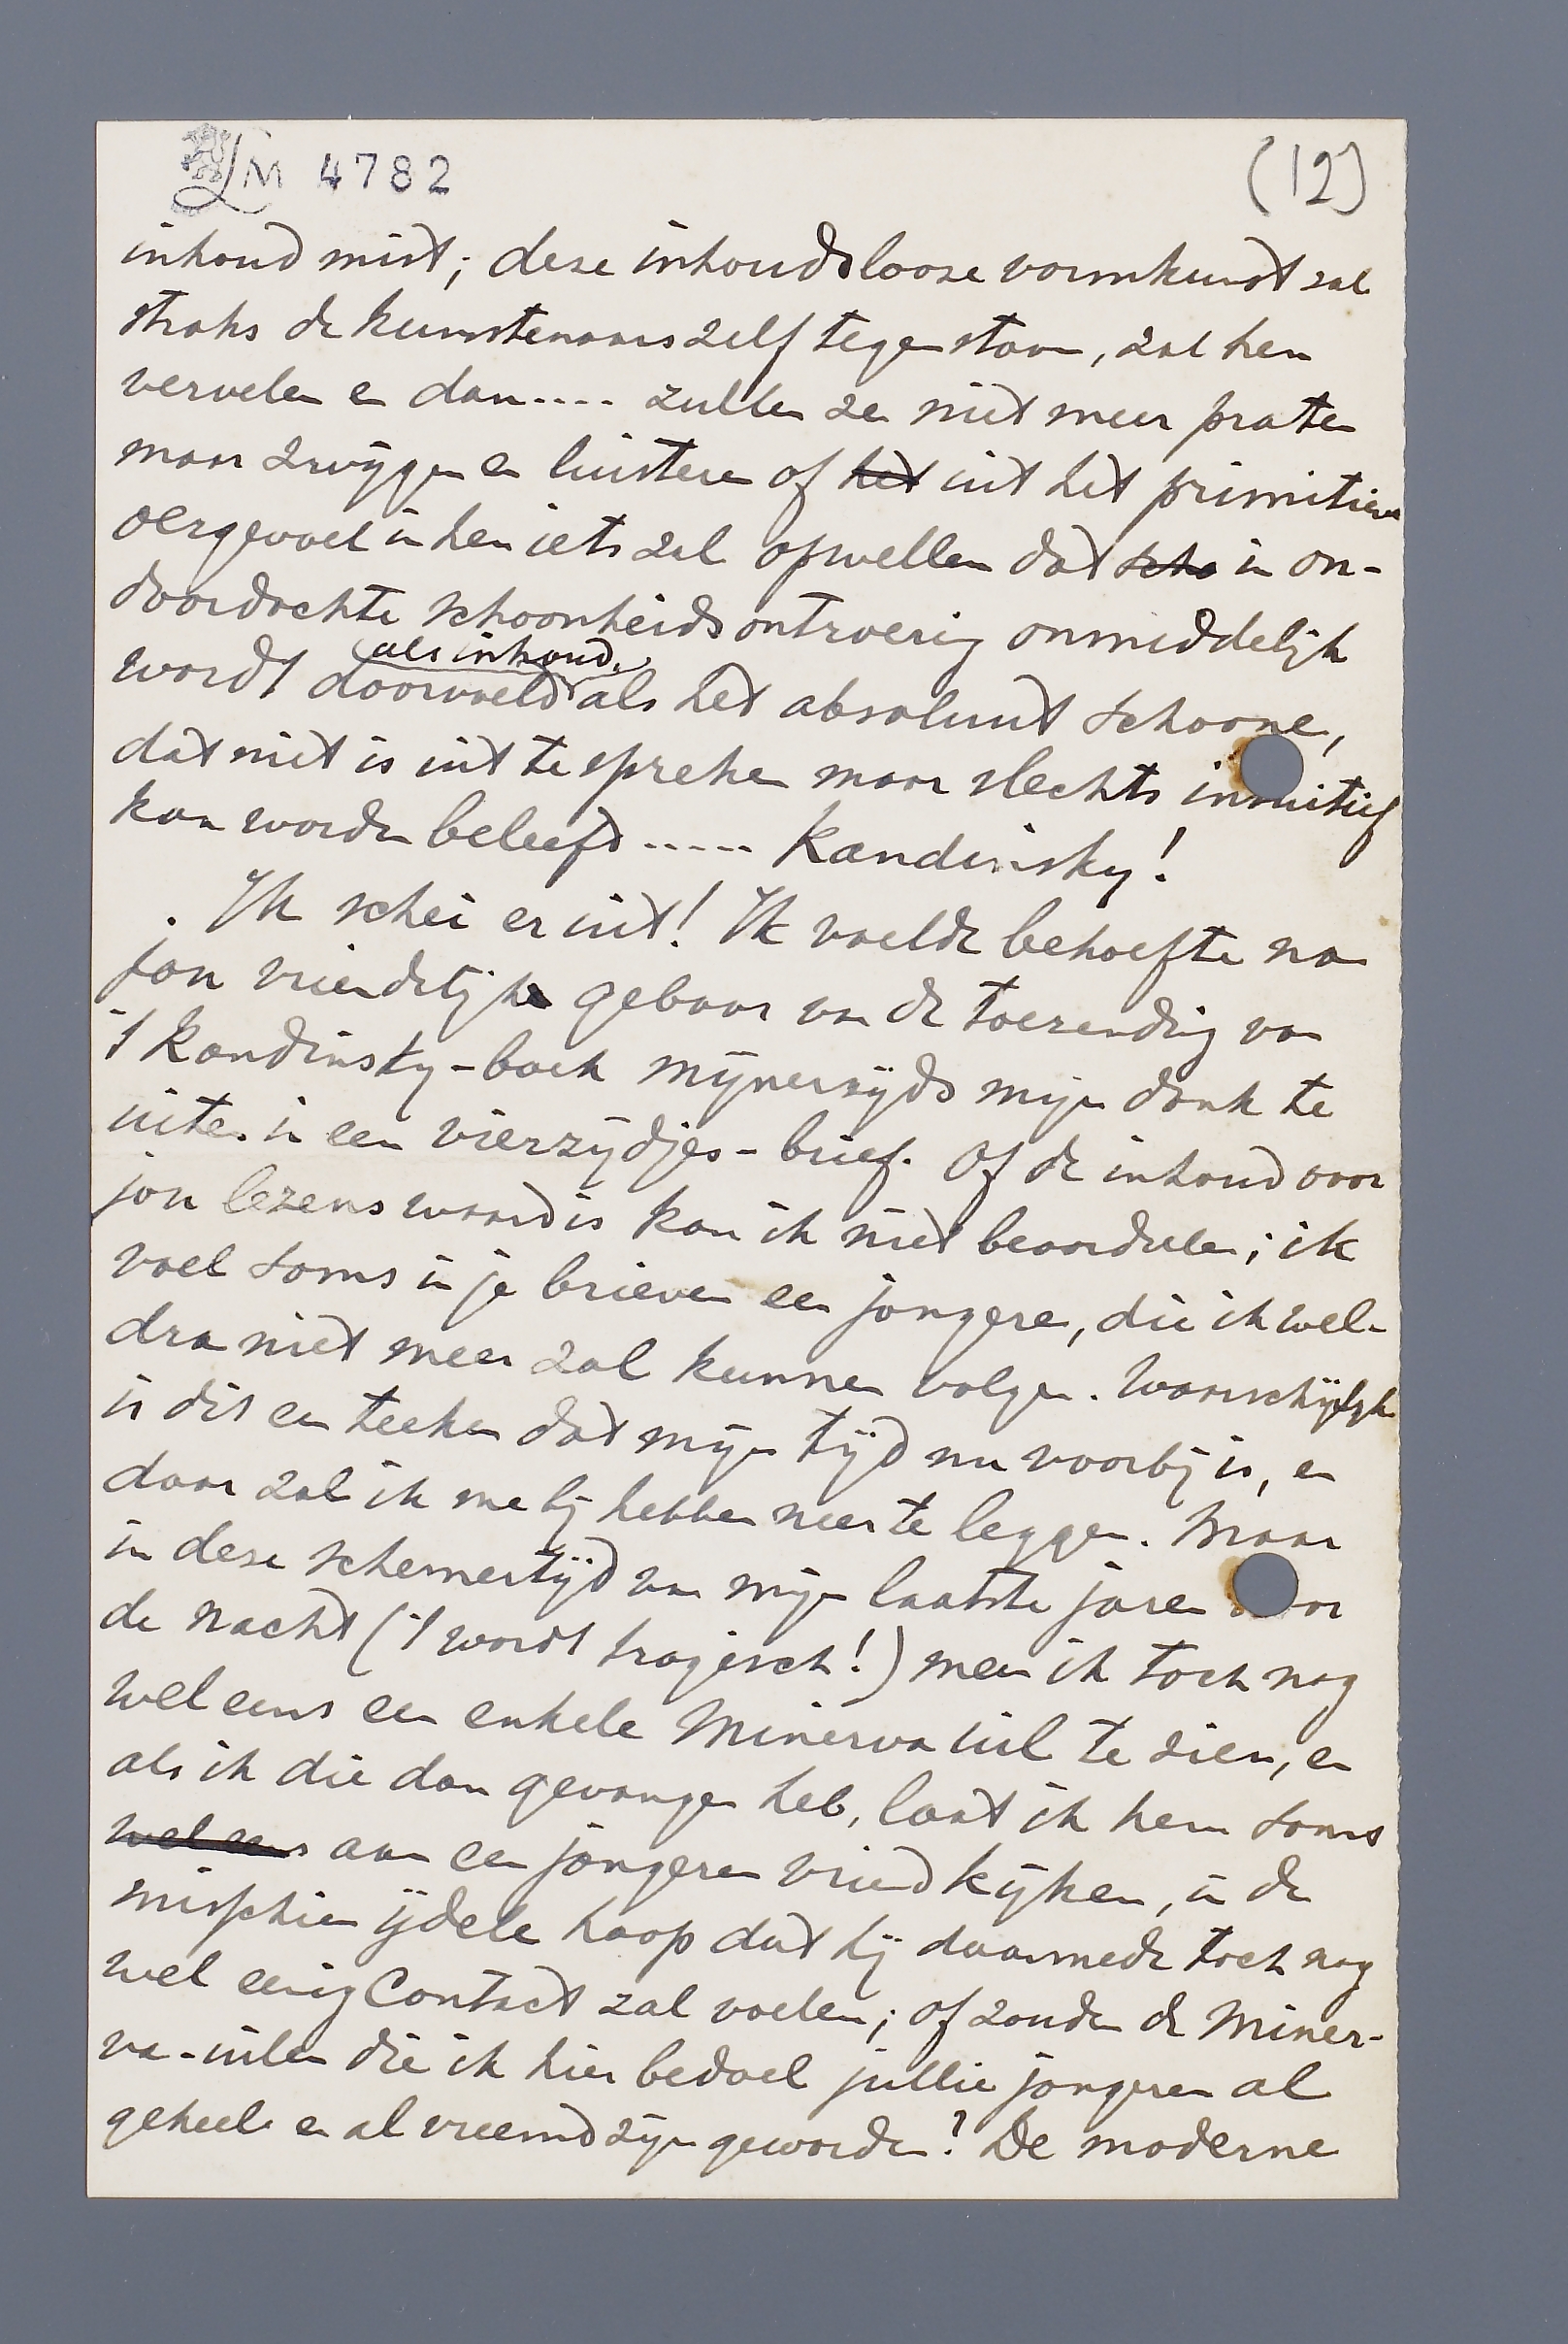 LM 4782
(12)
inhoud mist; deze inhoudsloose vormkunst zal
straks de kunstenaars zelf tegenstaan, zal hen
vervelen en dan.... zullen ze niet meer praten
maar zwijgen en luisteren of het uit het primitieve
oergevoel in hen iets zal opwellen dat scho in on-
doordachte schoonheidsontroering onmiddelijk
als inhoud
wordt doorvoeld als het absoluut schoone,
dat niet is uit te spreken maar slechts intuitief
kan worden beleefd ..... Kandinsky!
Ik schei er uit! Ik voelde behoefte na
jou vriendelijk gebaar van de toezending van
't Kandinsky-boek mijnerzijds mijn dank te
uiten in een vierzijdjes-brief. Of de inhoud voor
jou lezenswaard is kan ik niet beoordeelen; ik
voel soms in je brieven een jongere, die ik wel-
dra niet meer zal kunnen volgen. Waarschijnlijk
is dit een teeken dat mijn tijd nu voorbij is, en
daar zal ik me bij hebben neer te leggen. Maar
in deze schemertijd van mijn laatste jaren voor
de nacht ('t wordt tragisch!) meen ik toch nog
wel eens een enkele Minerva uil te zien, en
als ik die dan gevangen heb, laat ik hem soms
wel eens aan een jongeren vriend kijken, in de
misschien ijdele hoop dat hij daarmede toch nog
wel eenig Contact zal voelen; of zouden de Miner-
va-uilen die ik hier bedoel jullie jongeren al
geheel en al vreemd zijn geworden? De moderne